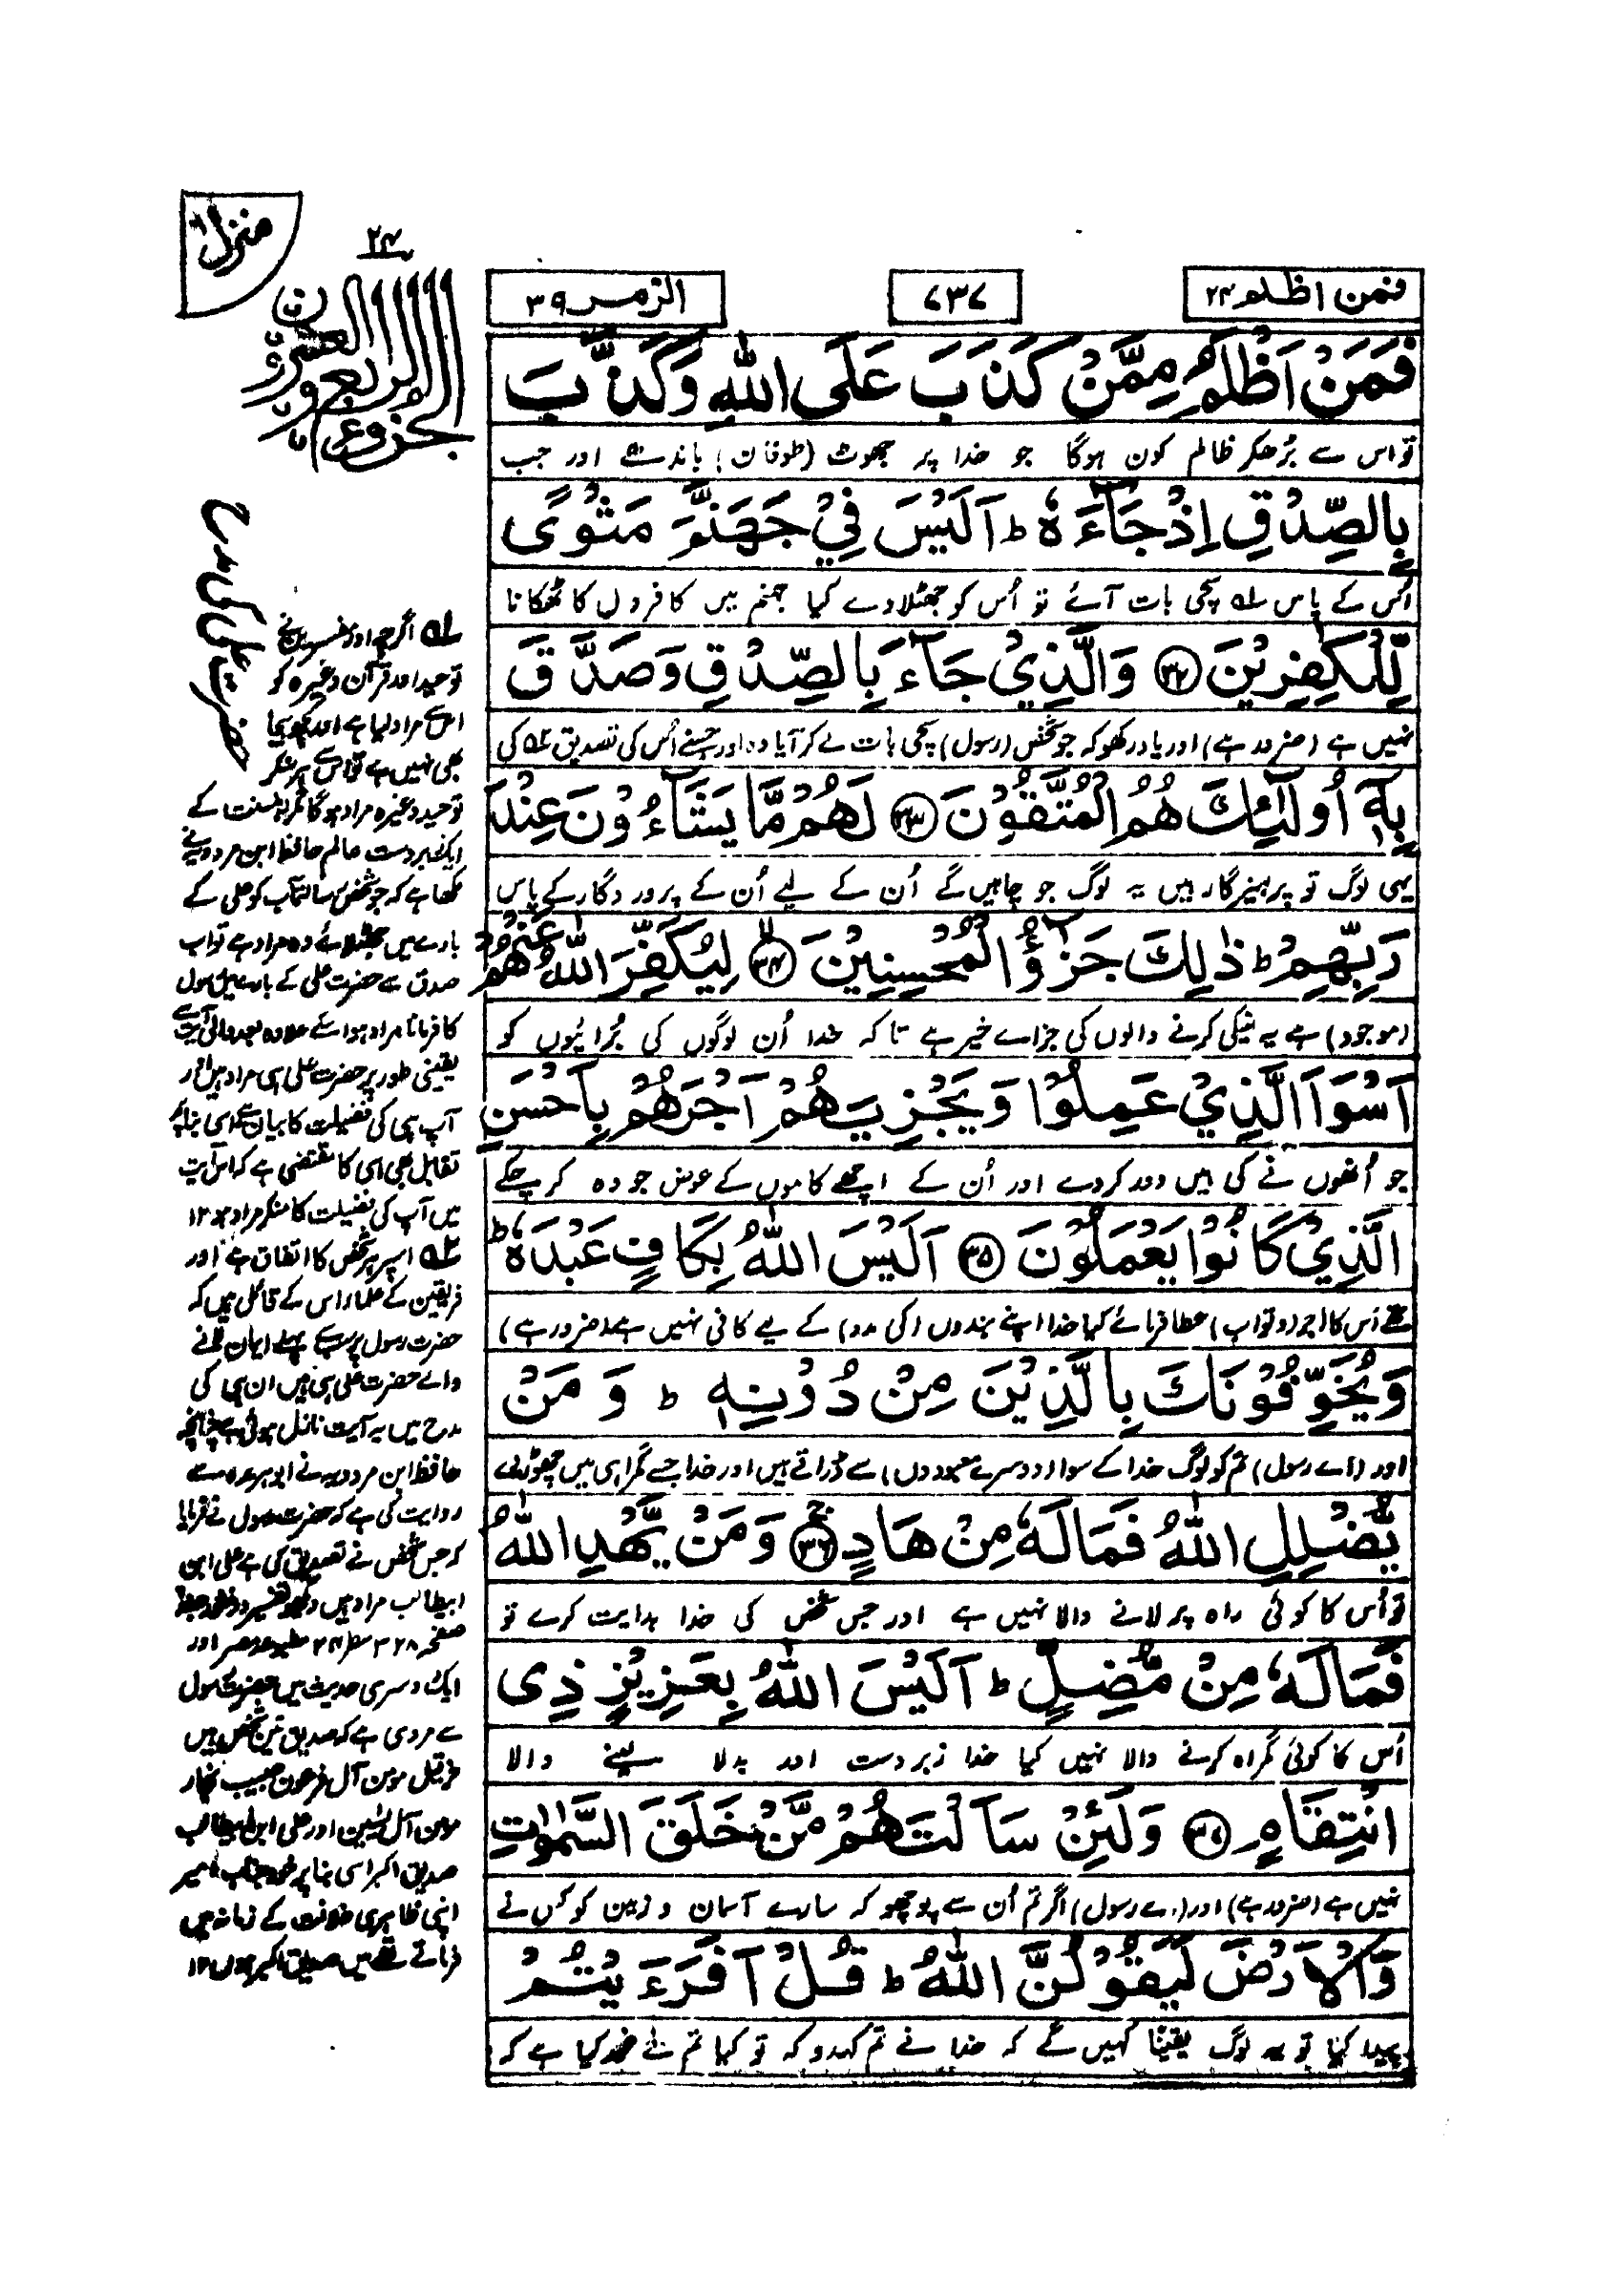 فمن اظلم ۲۴
۷۳۷
الزمر ۳۹
منزل ۶
۲۴
الجزء الرابع والعشرون
فَمَنْ اَظْلَمُ مِمَّنْ كَذَبَ عَلَى اللّٰهِ وَكَذَّبَ
تو اس سے بڑھکر ظالم کون ہوگا جو خدا پر جھوٹ (طوفان) باندھے اور جب
بِالصِّدْقِ اِذْ جَآءَهٗ ؕ اَلَيْسَ فِيْ جَهَنَّمَ مَثْوًى
اُس کے پاس ۱؎ سچی بات آئے تو اُس کو جھٹلا دے کیا جہنم میں کافروں کا ٹھکانا
لِّلْكٰفِرِيْنَ ﴿۳۲﴾ وَالَّذِيْ جَآءَ بِالصِّدْقِ وَصَدَّقَ
نہیں ہے (ضرور ہے) اور یاد رکھو کہ جو شخص (رسول) سچی بات لے کر آیا وہ اور جسنے اُس کی تصدیق ۲؎ کی
بِهٖۤ اُولٰٓئِكَ هُمُ الْمُتَّقُوْنَ ﴿۳۳﴾ لَهُمْ مَّا يَشَآءُوْنَ عِنْدَ
یہی لوگ تو پرہیزگار ہیں یہ لوگ جو چاہیں گے اُن کے لیے اُن کے پروردگار کے پاس
رَبِّهِمْ ؕ ذٰلِكَ جَزٰٓؤُا الْمُحْسِنِيْنَ ﴿۳۴﴾ لِيُكَفِّرَ اللّٰهُ عَنْهُمْ
(موجود) ہے یہ نیکی کرنے والوں کی جزاے خیر ہے تا کہ خدا اُن لوگوں کی بُرائیوں کو
اَسْوَاَ الَّذِيْ عَمِلُوْا وَيَجْزِيَهُمْ اَجْرَهُمْ بِاَحْسَنِ
جو اُنھوں نے کی ہیں دور کردے اور اُن کے اچھے کاموں کے عوض جو وہ کر چکے
الَّذِيْ كَانُوْا يَعْمَلُوْنَ ﴿۳۵﴾ اَلَيْسَ اللّٰهُ بِكَافٍ عَبْدَهٗ ؕ
تھے اُس کا اجر (ثواب) عطا فرمائے کیا خدا اپنے بندوں (کی مدد) کے لیے کافی نہیں ہے (ضرور ہے)
وَيُخَوِّفُوْنَكَ بِالَّذِيْنَ مِنْ دُوْنِهٖ ؕ وَمَنْ
اور (اے رسول) تم کو لوگ خدا کے سوا (دوسرے معبودوں) سے ڈراتے ہیں اور خدا جسے گمراہی میں چھوڑ دے
يُّضْلِلِ اللّٰهُ فَمَا لَهٗ مِنْ هَادٍ ﴿۳۶﴾ وَمَنْ يَّهْدِ اللّٰهُ
تو اُس کا کوئی راہ پر لانے والا نہیں ہے اور جس شخص کی خدا ہدایت کرے تو
فَمَا لَهٗ مِنْ مُّضِلٍّ ؕ اَلَيْسَ اللّٰهُ بِعَزِيْزٍ ذِى
اُس کا کوئی گمراہ کرنے والا نہیں کیا خدا زبردست اور بدلا لینے والا
انْتِقَامٍ ﴿۳۷﴾ وَلَئِنْ سَاَلْتَهُمْ مَّنْ خَلَقَ السَّمٰوٰتِ
نہیں ہے (ضرور ہے) اور (اے رسول) اگر تم اُن سے پوچھو کہ سارے آسمان و زمین کو کس نے
وَالْاَرْضَ لَيَقُوْلُنَّ اللّٰهُ ؕ قُلْ اَفَرَءَيْتُمْ
پیدا کیا تو یہ لوگ یقیناً کہیں گے کہ خدا نے تم کہدو کہ تو کیا تم نے غور کیا ہے کہ
حضرت علی کی مدح
۱؎ اگرچہ اور مفسرین نے
توحید اور قرآن وغیرہ کو
اس سے مراد لیا ہے اور کچھ بیجا
بھی نہیں ہے تو اس سے ہر منکر
توحید وغیرہ مراد ہوگا مگر اہلسنت کے
ایک زبردست عالم حافظ ابن مردویہ نے
لکھا ہے کہ جو شخص رسالتمآب کو علی کے
بارے میں جھٹلائے وہ مراد ہے تو اب
صدق سے حضرت علی کے بارے میں رسول
کا فرمانا مراد ہوا اسکے علاوہ بعد والی آیت سے
یقینی طور پر حضرت علی ہی مراد ہیں اور
آپ ہی کی فضیلت کا بیان ہے اسی بنا پر
تقابل بھی اسی کا مقتضی ہے کہ اس آیت
میں آپ کی فضیلت کا منکر مراد ہو ۱۲
۲؎ اسپر ہر شخص کا اتفاق ہے اور
فریقین کے علماء اس کے قائل ہیں کہ
حضرت رسول پر سب سے پہلے ایمان لانے
والے حضرت علی ہی ہیں ان ہی کی
مدح میں یہ آیت نازل ہوئی ہے چنانچہ
حافظ ابن مردویہ نے ابوہریرہ سے
روایت کی ہے کہ حضرت رسول نے فرمایا
کہ جس شخص نے تصدیق کی ہے علی ابن
ابیطالب مراد ہیں دیکھو تفسیر در منثور جلد
صفحہ ۳۲۸ سطر ۲۴ مطبوعہ مصر اور
ایک دوسری حدیث میں حضرت رسول
سے مروی ہے کہ صدیق تین شخص ہیں
حزقیل مومن آل فرعون حبیب نجار
مومن آل یٰسین اور علی ابن ابیطالب
صدیق اکبر اسی بنا پر خود جناب امیر
اپنی ظاہری خلافت کے زمانہ میں
فرماتے تھے میں صدیق اکبر ہوں ۱۲